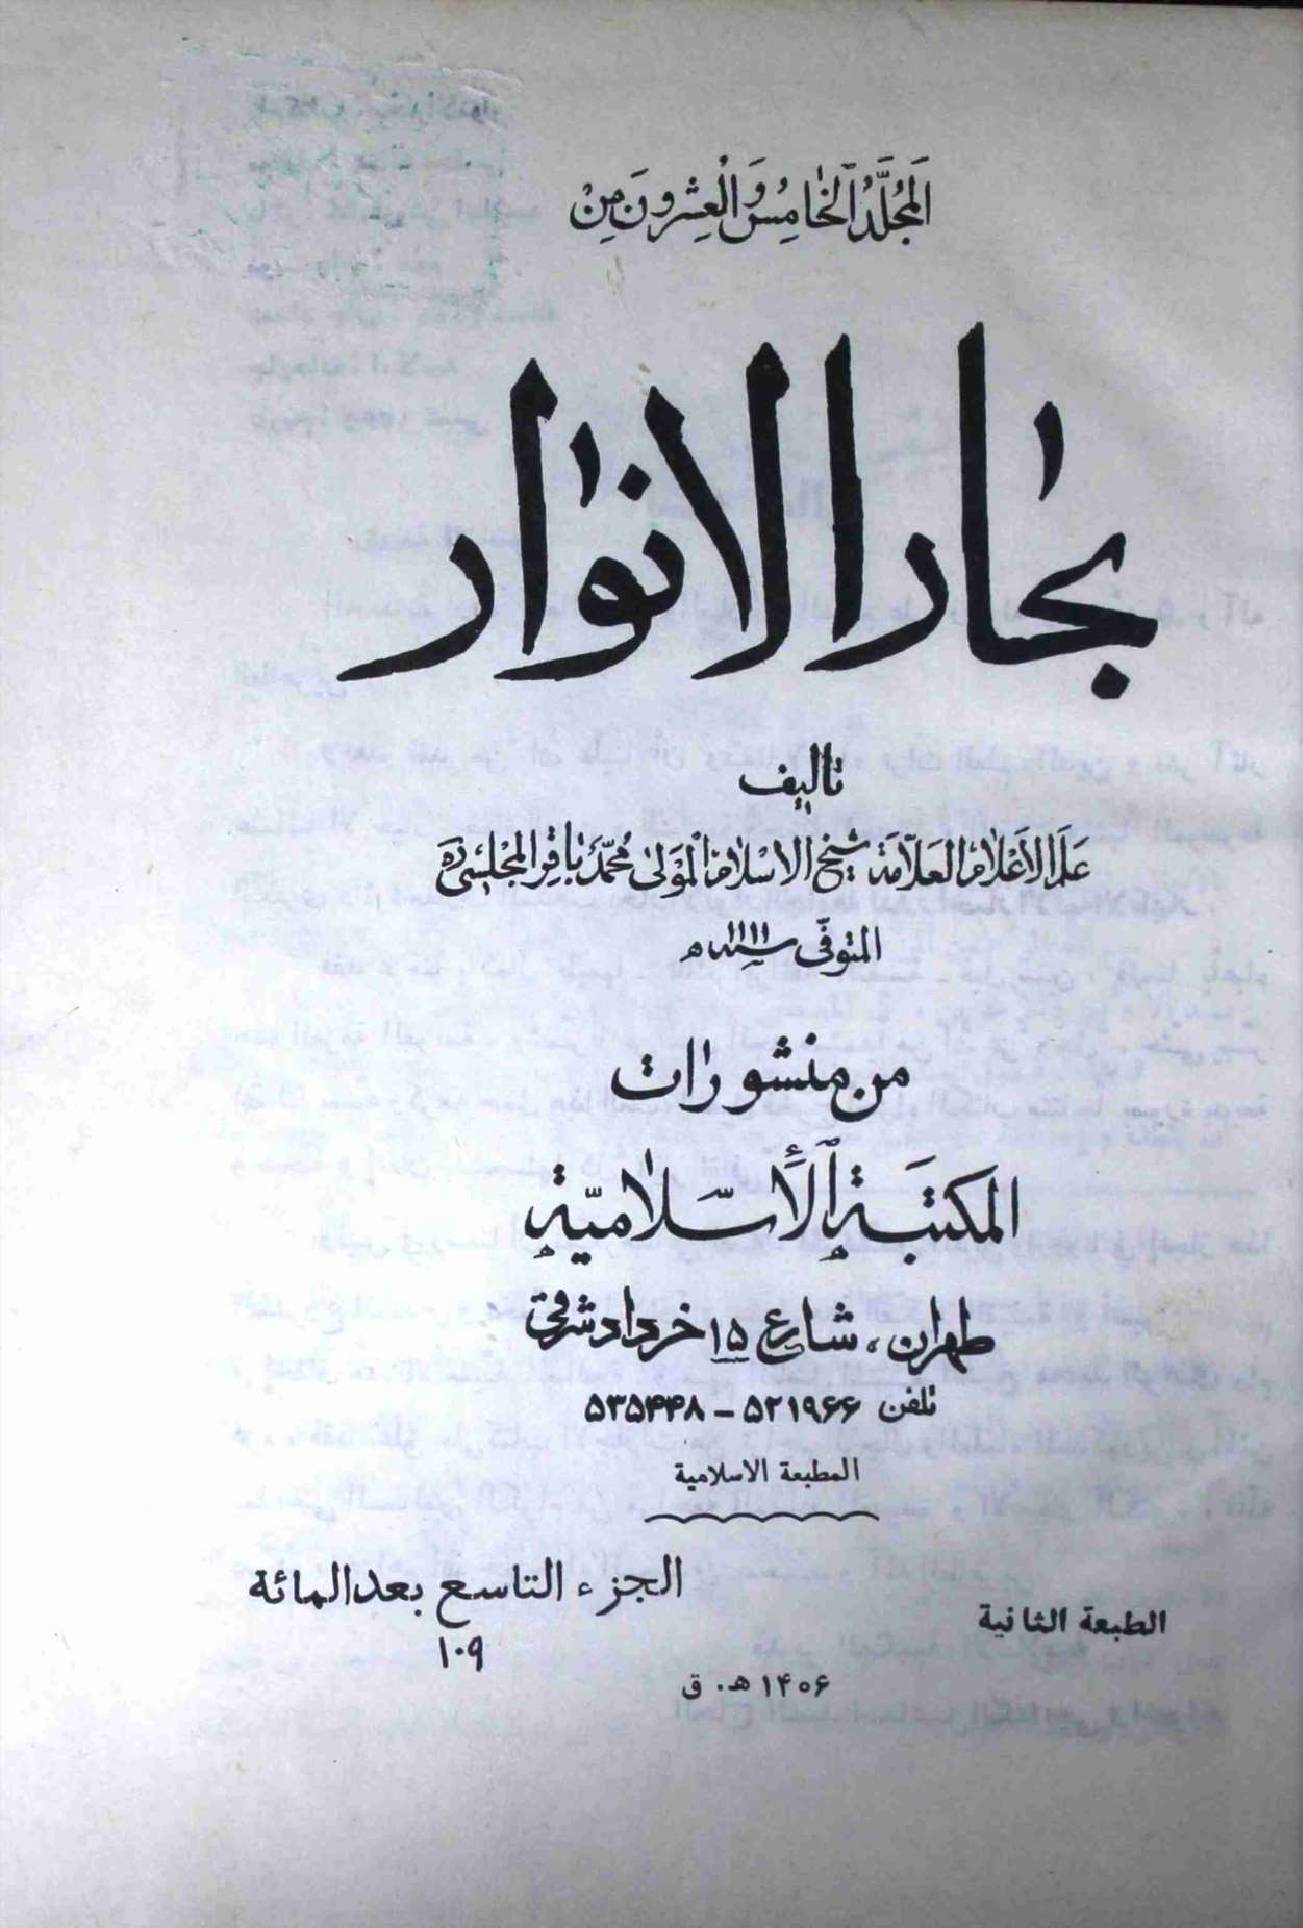 اَلمُجَلَّدُ الخٰامِسُ وَالْعِشرُونَ مِنْ
بحٰار الانوٰار
تأليف
عَلَم الاَعْلامِ العَلاّمَة شيخ الاسْلام المَوْلىٰ مُحمّد بٰاقِر المجْلِسى ره
المتوفّى سنة ۱۱۱۱ ه
من منشورٰات
المكتبَةِ الْأسّلٰاميّةِ
طهران، شارع ۱۵ خرداد شرقى
تلفن ۵۲۱۹۶۶ – ۵۳۵۴۴۸
المطبعة الاسلامية
الجزء التاسع بعد المائة
۱۰۹
الطبعة الثانية
۱۴۰۶ هـ . ق